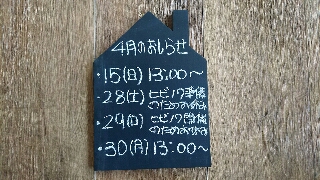 4月のおしらせ
・15(日) 13:00〜
・28(土) ヒビノワ準備
のためお休み
・29(日) ヒビノワ開催
のためお休み
・30(月) 13:00〜